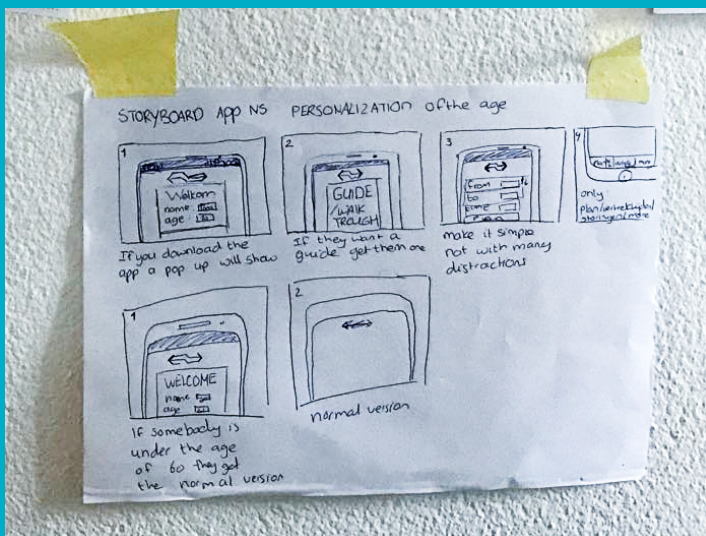 STORYBOARD App NS PERSONALIZATION of the age
1
Welkom
name:
age:
If you download the
app a pop up will show
2
GUIDE
/WALK
TROUGH
If they want a
guide get them one
3
from
to
time
make it simple
not with many
distractions
4
only
1
WELCOME
name
age
If somebody is
under the age
of 60 they get
the normal version
2
normal version